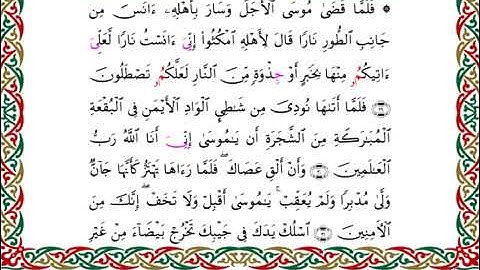 ۞ فَلَمَّا قَضَىٰ مُوسَى ٱلْأَجَلَ وَسَارَ بِأَهْلِهِۦٓ ءَانَسَ مِن
جَانِبِ ٱلطُّورِ نَارًا قَالَ لِأَهْلِهِ ٱمْكُثُوٓا۟ إِنِّىَ ءَانَسْتُ نَارًا لَّعَلِّىَ
ءَاتِيكُمُۥ مِنْهَا بِخَبَرٍ أَوْ جِذْوَةٍ مِّنَ ٱلنَّارِ لَعَلَّكُمُۥ تَصْطَلُونَ
۝٢٩ فَلَمَّآ أَتَىٰهَا نُودِىَ مِن شَٰطِئِ ٱلْوَادِ ٱلْأَيْمَنِ فِى ٱلْبُقْعَةِ
ٱلْمُبَٰرَكَةِ مِنَ ٱلشَّجَرَةِ أَن يَٰمُوسَىٰٓ إِنِّىَ أَنَا ٱللَّهُ رَبُّ
ٱلْعَٰلَمِينَ ۝٣٠ وَأَنْ أَلْقِ عَصَاكَ ۖ فَلَمَّا رَءَاهَا تَهْتَزُّ كَأَنَّهَا جَآنٌّ
وَلَّىٰ مُدْبِرًا وَلَمْ يُعَقِّبْ ۚ يَٰمُوسَىٰٓ أَقْبِلْ وَلَا تَخَفْ ۖ إِنَّكَ مِنَ
ٱلْءَامِنِينَ ۝٣١ ٱسْلُكْ يَدَكَ فِى جَيْبِكَ تَخْرُجْ بَيْضَآءَ مِنْ غَيْرِ